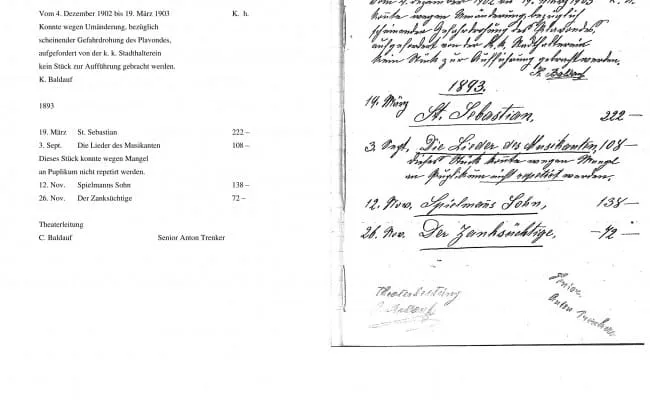 Vom 4. Dezember 1902 bis 19. März 1903 K. h.
Konnte wegen Umänderung, bezüglich
scheinender Gefahrdrohung des Plavondes,
aufgefordert von der k. k. Stadthalterein
kein Stück zur Aufführung gebracht werden.
K. Baldauf
1893
19. März St. Sebastian 222 –
3. Sept. Die Lieder des Musikanten 108 –
Dieses Stück konnte wegen Mangel
an Puplikum nicht repetirt werden.
12. Nov. Spielmanns Sohn 138 –
26. Nov. Der Zanksüchtige 72 –
Theaterleitung
C. Baldauf Senior Anton Trenker
Vom 4. Dezember 1902 bis 19. März 1903 K. h.
Konnte wegen Umänderung, bezüglich
scheinender Gefahrdrohung des Plavondes,
aufgefordert von der k. k. Stadthalterein
kein Stück zur Aufführung gebracht werden.
K. Baldauf
1893.
19. März St. Sebastian. 222 —
3. Sept. Die Lieder des Musikanten, 108 —
Dieses Stück konnte wegen Mangel
an Puplikum nicht repetirt werden.
12. Nov. Spielmanns Sohn, 138 —
26. Nov. Der Zanksüchtige, 72 —
Theaterleitung
C. Baldauf
Senior
Anton Trenker